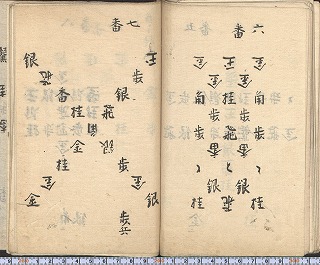 六番
金 王 金 金
角 桂 歩 角
歩 歩 歩
香 飛 香
銀 銀
桂 飛 桂
七番
王
歩
銀 銀
飛 飛
香
桂 銀
金 歩
桂 金
金 銀
歩兵